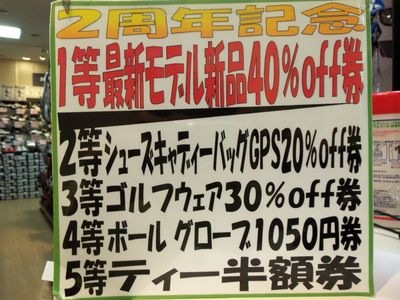 2周年記念
1等最新モデル新品40%off券
2等シューズキャディーバッグGPS20%off券
3等ゴルフウェア30%off券
4等ボール グローブ1050円券
5等ティー半額券